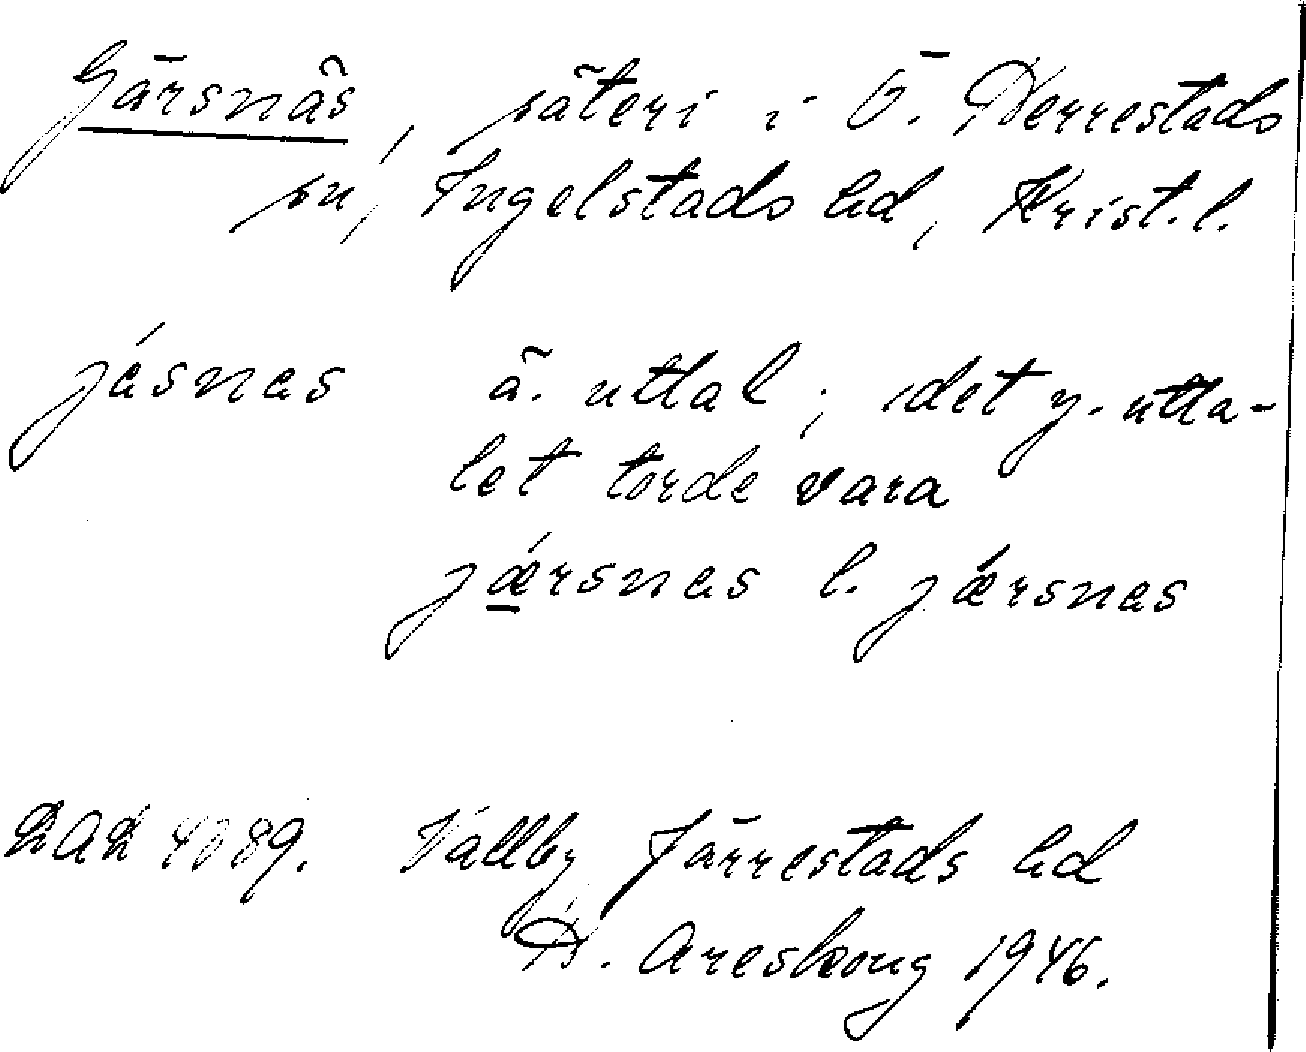 Gärsnäs, säteri i Ö. Herrestads
sn, Ingelstads hd, Krist. l.
jásnas ä. uttal; det y. utta-
let torde vara
jǽrsnas l. jǽrsnas
LAL 4089. Vallby Järrestads hd
D. Areskoug 1946.